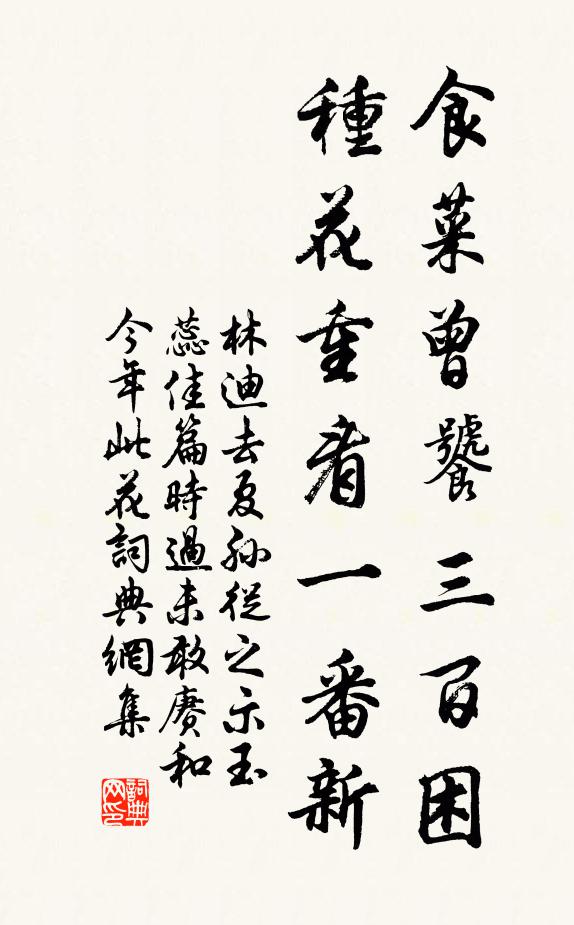 食菜曾饕三百困
種花重看一番新
林迪去夏孙從之示玉
蕊佳篇時過未敢賡和
今年此花詞典網集
詞典网印